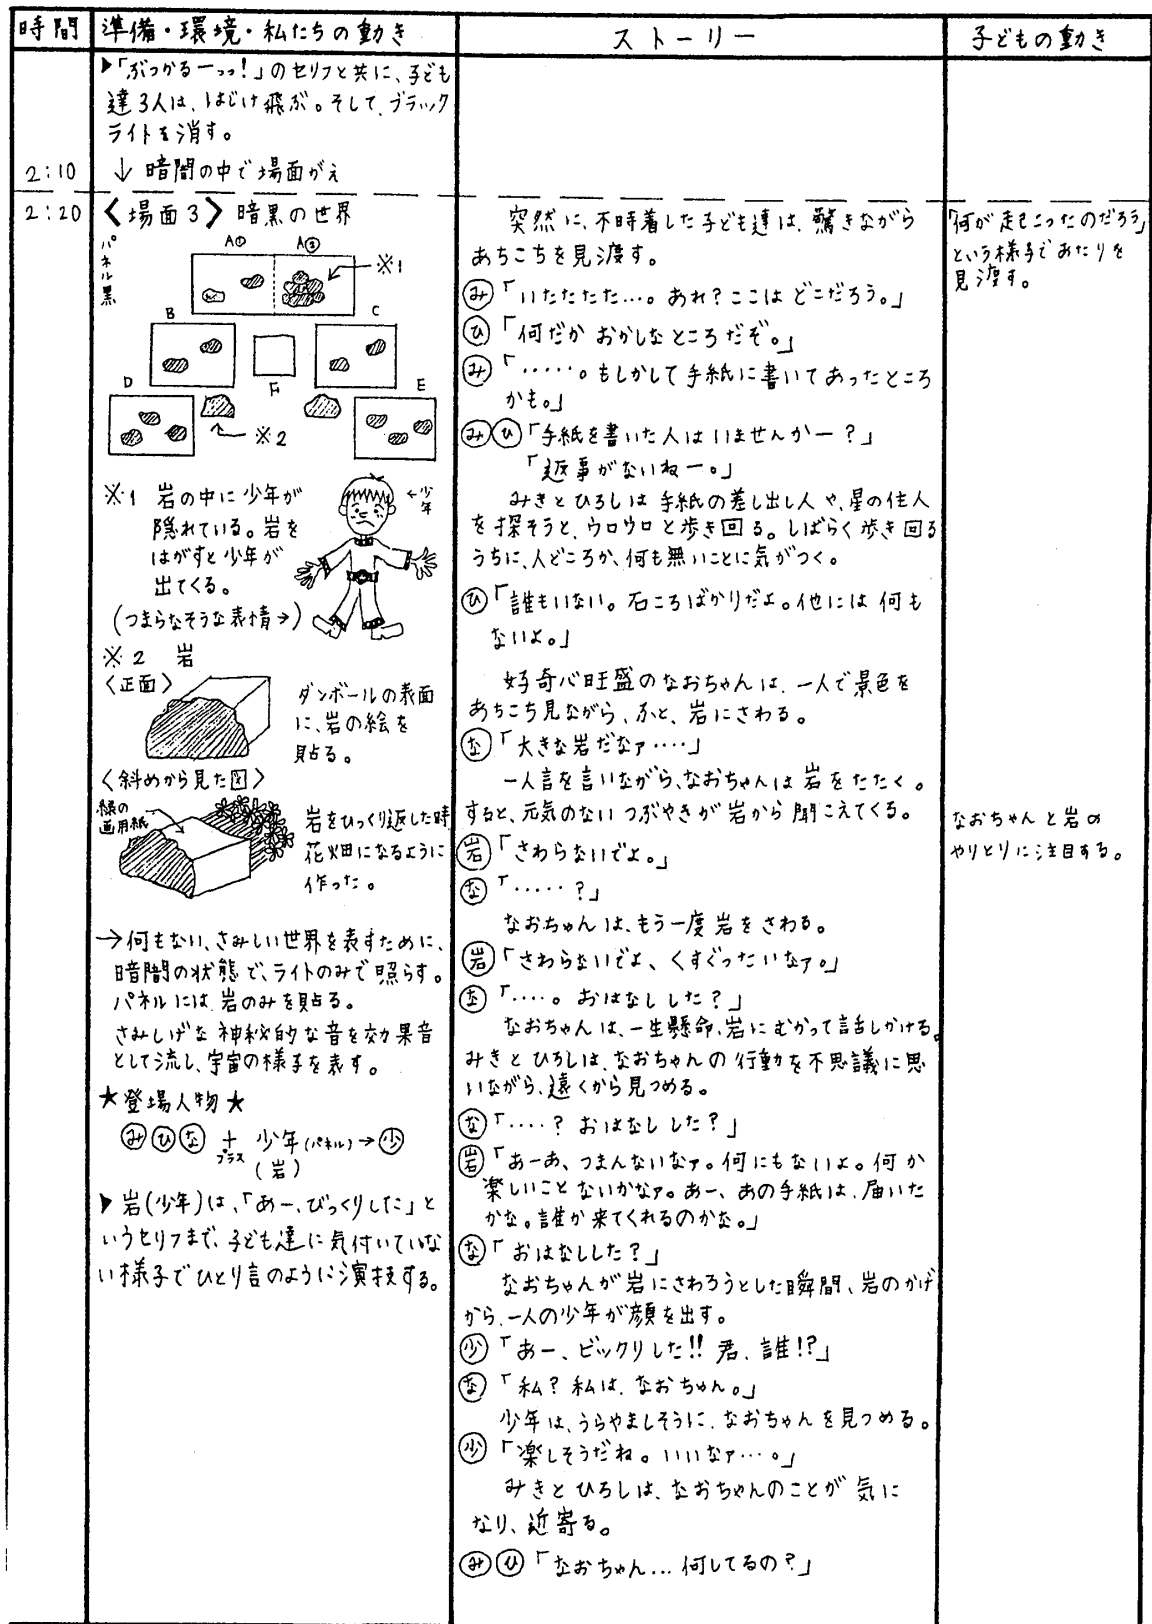 時間
準備・環境・私たちの動き
ストーリー
子どもの動き
▶「ぶつかるーっっ!」のセリフと共に、子ども
達3人は、はじけ飛ぶ。そして、ブラック
ライトを消す。
2:10
↓ 暗闇の中で場面がえ
2:20
〈場面3〉暗黒の世界
パネル黒
A①
A②
※1
B
C
D
F
E
※2
※1 岩の中に少年が
隠れている。岩を
はがすと少年が
出てくる。
(つまらなそうな表情→)
←少年
※2 岩
〈正面〉
ダンボールの表面
に、岩の絵を
貼る。
〈斜めから見た図〉
緑の
画用紙
岩をひっくり返した時
花畑になるように
作った。
→何もない、さみしい世界を表すために、
暗闇の状態で、ライトのみで照らす。
パネルには、岩のみを貼る。
さみしげな神秘的な音を効果音
として流し、宇宙の様子を表す。
★登場人物★
み ひ な + 少年(パネル)→少
プラス
(岩)
▶岩(少年)は、「あー、びっくりした」と
いうセリフまで、子ども達に気付いていな
い様子でひとり言のように演技する。
突然に、不時着した子ども達は、驚きながら
あちこちを見渡す。
み「いたたたた…。あれ?ここは どこだろう。」
ひ「何だか おかしなところだぞ。」
み「・・・・・。もしかして手紙に書いてあったところ
かも。」
み ひ「手紙を書いた人はいませんかー?」
「返事がないねー。」
みきとひろしは 手紙の差し出し人や、星の住人
を探そうと、ウロウロと歩き回る。しばらく歩き回る
うちに、人どころか、何も無いことに気がつく。
ひ「誰もいない。石ころばかりだよ。他には 何も
ないよ。」
好奇心旺盛のなおちゃんは、一人で景色を
あちこち見ながら、ふと、岩にさわる。
な「大きな岩だなァ‥‥」
一人言を言いながら、なおちゃんは岩をたたく。
すると、元気のない つぶやきが 岩から 聞こえてくる。
岩「さわらないでよ。」
な「‥‥‥?」
なおちゃんは、もう一度岩をさわる。
岩「さわらないでよ、くすぐったいなァ。」
な「‥‥。おはなしした?」
なおちゃんは、一生懸命、岩にむかって話しかける。
みきと ひろしは、なおちゃんの 行動を不思議に思
いながら、遠くから見つめる。
な「‥‥? おはなし した?」
岩「あーあ、つまんないなァ。何にもないよ。何か
楽しいこと ないかなァ。あー、あの手紙は、届いた
かな。誰か来てくれるのかな。」
な「おはなしした?」
なおちゃんが岩にさわろうとした瞬間、岩のかげ
から、一人の少年が顔を出す。
少「あー、ビックリした!! 君、誰!?」
な「私? 私は、なおちゃん。」
少年は、うらやましそうに、なおちゃんを見つめる。
少「楽しそうだね。いいなァ…。」
みきと ひろしは、なおちゃんのことが 気に
なり、近寄る。
み ひ「なおちゃん… 何してるの?」
「何が起こったのだろう」
という様子であたりを
見渡す。
なおちゃんと岩の
やりとりに注目する。